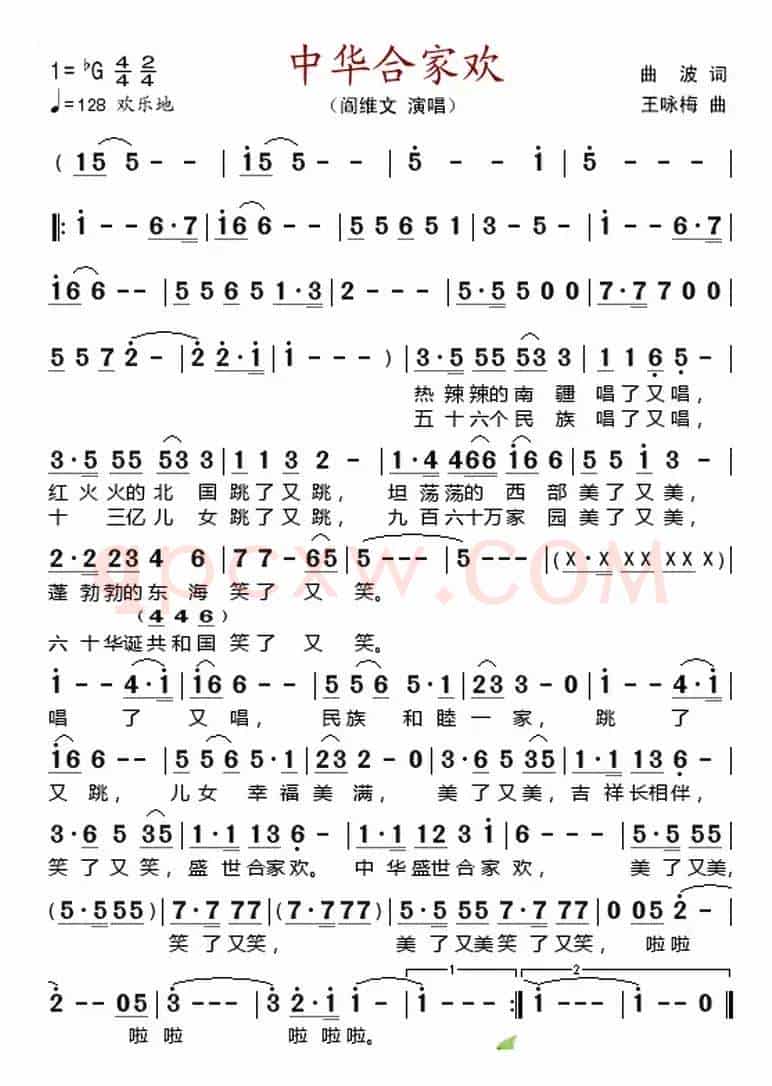 1=♭G 4/4 2/4 中华合家欢 曲 波 词
♩=128 欢乐地 （阎维文 演唱） 王咏梅 曲
( 1 5 5 - - | i 5 5 - - | 5 - - i | 5 - - |
‖: i - - 6·7 | i 6 6 - - | 5 5 6 5 1 | 3 - 5 - | i - - 6·7 |
i 6 6 - - | 5 5 6 5 1·3 | 2 - - - | 5·5 5 0 0 | 7·7 7 0 0 |
5 5 7 2 - | 2 2·i | i - - - ) | 3·5 55 53 3 | 1 1 6 5 - |
热辣辣的南 疆 唱了又唱，
五十六个民 族 唱了又唱，
3·5 55 53 3 | 1 1 3 2 - | 1·4 466 i6 6 | 5 5 i 3 - |
红火火的北 国跳了又跳， 坦荡荡的 西 部美了又美，
十 三亿儿 女跳了又跳， 九百六十万家 园美了又美，
2·2 23 4 6 | 7 7 - 65 | 5 - - - | 5 - - - | (X·X XX XX XX) |
qpcxw.COM
蓬 勃勃的东 海 笑了 又 笑。
( 4 4 6 )
六 十华诞共和国 笑了 又 笑。
i - - 4·i | i6 6 - - | 5 5 6 5·1 | 23 3 - 0 | i - - 4·i |
唱 了 又唱， 民族 和睦一家， 跳 了
i6 6 - - | 5 5 6 5·1 | 23 2 - 0 | 3·6 5 35 | 1·1 13 6 - |
又跳， 儿女 幸福美 满， 美了又美，吉祥长相伴，
3·6 5 35 | 1·1 13 6 - | 1·1 12 3 i | 6 - - - | 5·5 55 |
笑了又笑，盛世合家欢。 中华盛世合家 欢， 美了又美，
(5·5 55) | 7·7 77 | (7·7 77) | 5·5 55 7·7 77 | 0 05 2 - |
笑了又笑， 美了又美笑了又笑， 啦啦
2 - - 05 | 3 - - - | 3 - - - | 3 2·i i | i - - - :‖ i - - - | i - - 0 ‖
1 2
啦 啦 啦 啦啦。